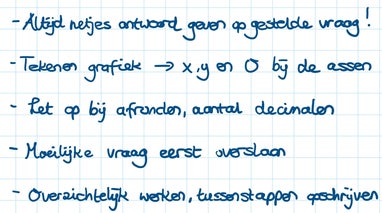 - Altijd netjes antwoord geven op gestelde vraag!
- Tekenen grafiek → x,y en O bij de assen
- Let op bij afronden, aantal decimalen
- Moeilijke vraag eerst overslaan
- Overzichtelijk werken, tussenstappen opschrijven